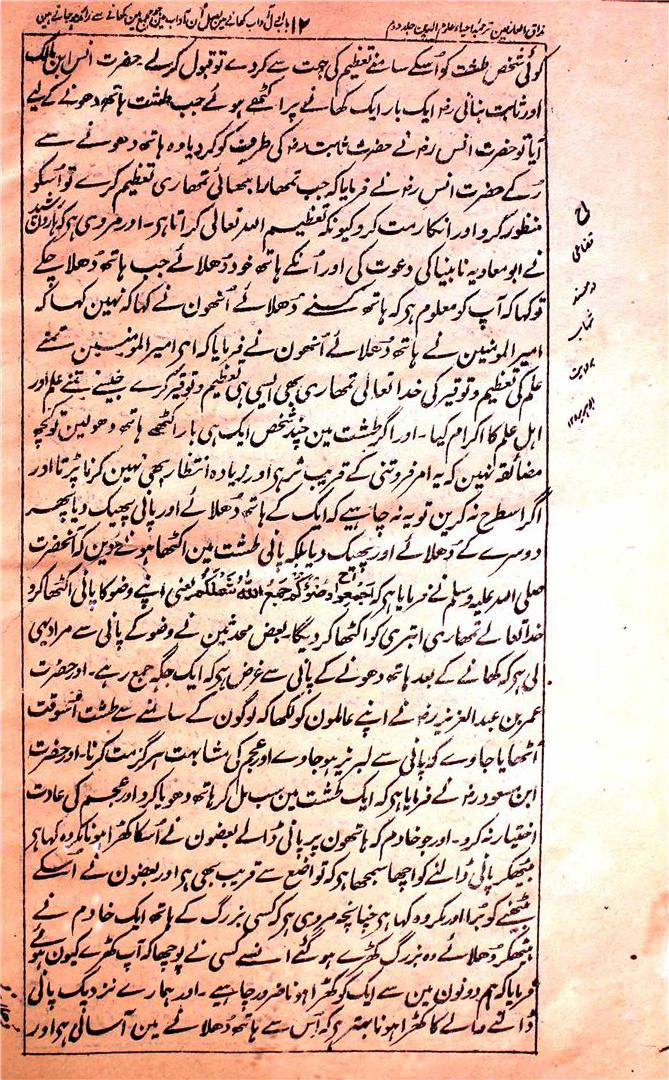 مذاق العارفین ترجمہ احیاء علوم الدین جلد دوم ۱۲ باب اول آداب کھانے میں
کوئی شخص طشت کو اُسکے سامنے تعظیم کی جہت سے کردے تو قبول کرلے۔ حضرت انس ابن مالک
اور ثابت بنانی رضہ ایک بار ایک کھانے پر اکٹھے ہوئے جب طشت ہاتھ دھونے کے لیے
آیا تو حضرت انس رضہ نے حضرت ثابت رضہ کی طرف کو کر دیا وہ ہاتھ دھونے سے
رُکے حضرت انس رضہ نے فرمایا کہ جب تمھارا بھائی تمھاری تعظیم کرے تو اُسکو
منظور کرو اور انکار مت کرو کیونکہ تعظیم اللہ تعالی کراتا ہی۔ اور مروی ہی کہ ہارون رشید
نے ابو معاویہ نابینا کی دعوت کی اور اُنکے ہاتھ خود دُھلائے جب ہاتھ دُھلا چکے
تو کہا کہ آپ کو معلوم ہو کہ ہاتھ کسنے دُھلائے اُنھون نے کہا کہ نہین کہا کہ
امیر المومنین نے ہاتھ دُھلائے اُنھون نے فرمایا کہ ای امیر المومنین تمنے
علم کی تعظیم و توقیر کی خدا تعالی تمھاری بھی ایسی ہی تعظیم و توقیر کرے جیسے تمنے علم اور
اہل علم کا اکرام کیا۔ اور اگر طشت مین چند شخص ایک ہی بار اکٹھے ہاتھ دھولین تو کچھ
مضائقہ نہین کہ یہ امر فروتنی کے قریب تر ہی اور زیادہ انتظار بھی نہین کرنا پڑتا اور
اگر اسطرح نہ کرین تو یہ نہ چاہیے کہ ایک کے ہاتھ دُھلائے اور پانی پھیک دیا پھر
دوسرے کے دُھلائے اور پھیک دیا بلکہ پانی طشت مین اکٹھا ہونے دین کہ آنحضرت
صلی اللہ علیہ وسلم نے فرمایا ہی کہ اَجْمِعُوا وَضُوْءَكُمْ جَمَعَ اللهُ شَمْلَكُمْ یعنی اپنے وضو کا پانی اکٹھا کرو
خدا تعالے تمھاری ابتری کو اکٹھا کر دیگا۔ بعض محدثین نے وضو کے پانی سے مراد یہی
لی ہی کہ کھانے کے بعد ہاتھ دھونے کے پانی سے غرض ہی کہ ایک جگہ جمع رہے۔ اور حضرت
عمر بن عبد العزیز رضہ نے اپنے عاملون کو لکھا کہ لوگون کے سامنے سے طشت اُسوقت
اُٹھایا جاوے کہ پانی سے لبریز ہوجاوے اور عجم کی مشابہت ہرگز مت کرنا۔ اور حضرت
ابن مسعود رضہ نے فرمایا ہی کہ ایک طشت مین سب مل کر ہاتھ دھویا کرو اور عجم کی عادت
اختیار نہ کرو۔ اور جو خادم کہ ہاتھون پر پانی ڈالے بعضون نے اُسکا کھڑا ہونا مکروہ کہا ہی
بیٹھکر پانی ڈالنے کو اچھا سمجھا ہی کہ تواضع سے قریب بھی ہی اور بعضون نے اُسکے
بیٹھنے کو بُرا اور مکروہ کہا ہی چنانچہ مروی ہی کہ کسی بزرگ کے ہاتھ ایک خادم نے
بیٹھکر دُھلائے وہ بزرگ کھڑے ہوگئے اُنسے کسی نے پوچھا کہ آپ کھڑے کیون ہوئے
فرمایا کہ ہم دونون مین سے ایک کو کھڑا ہونا ضرور چاہیے۔ اور ہمارے نزدیک پانی
ڈالنے والے کا کھڑا ہونا بہتر ہی کہ اِس سے ہاتھ دُھلانے مین آسانی ہی اور